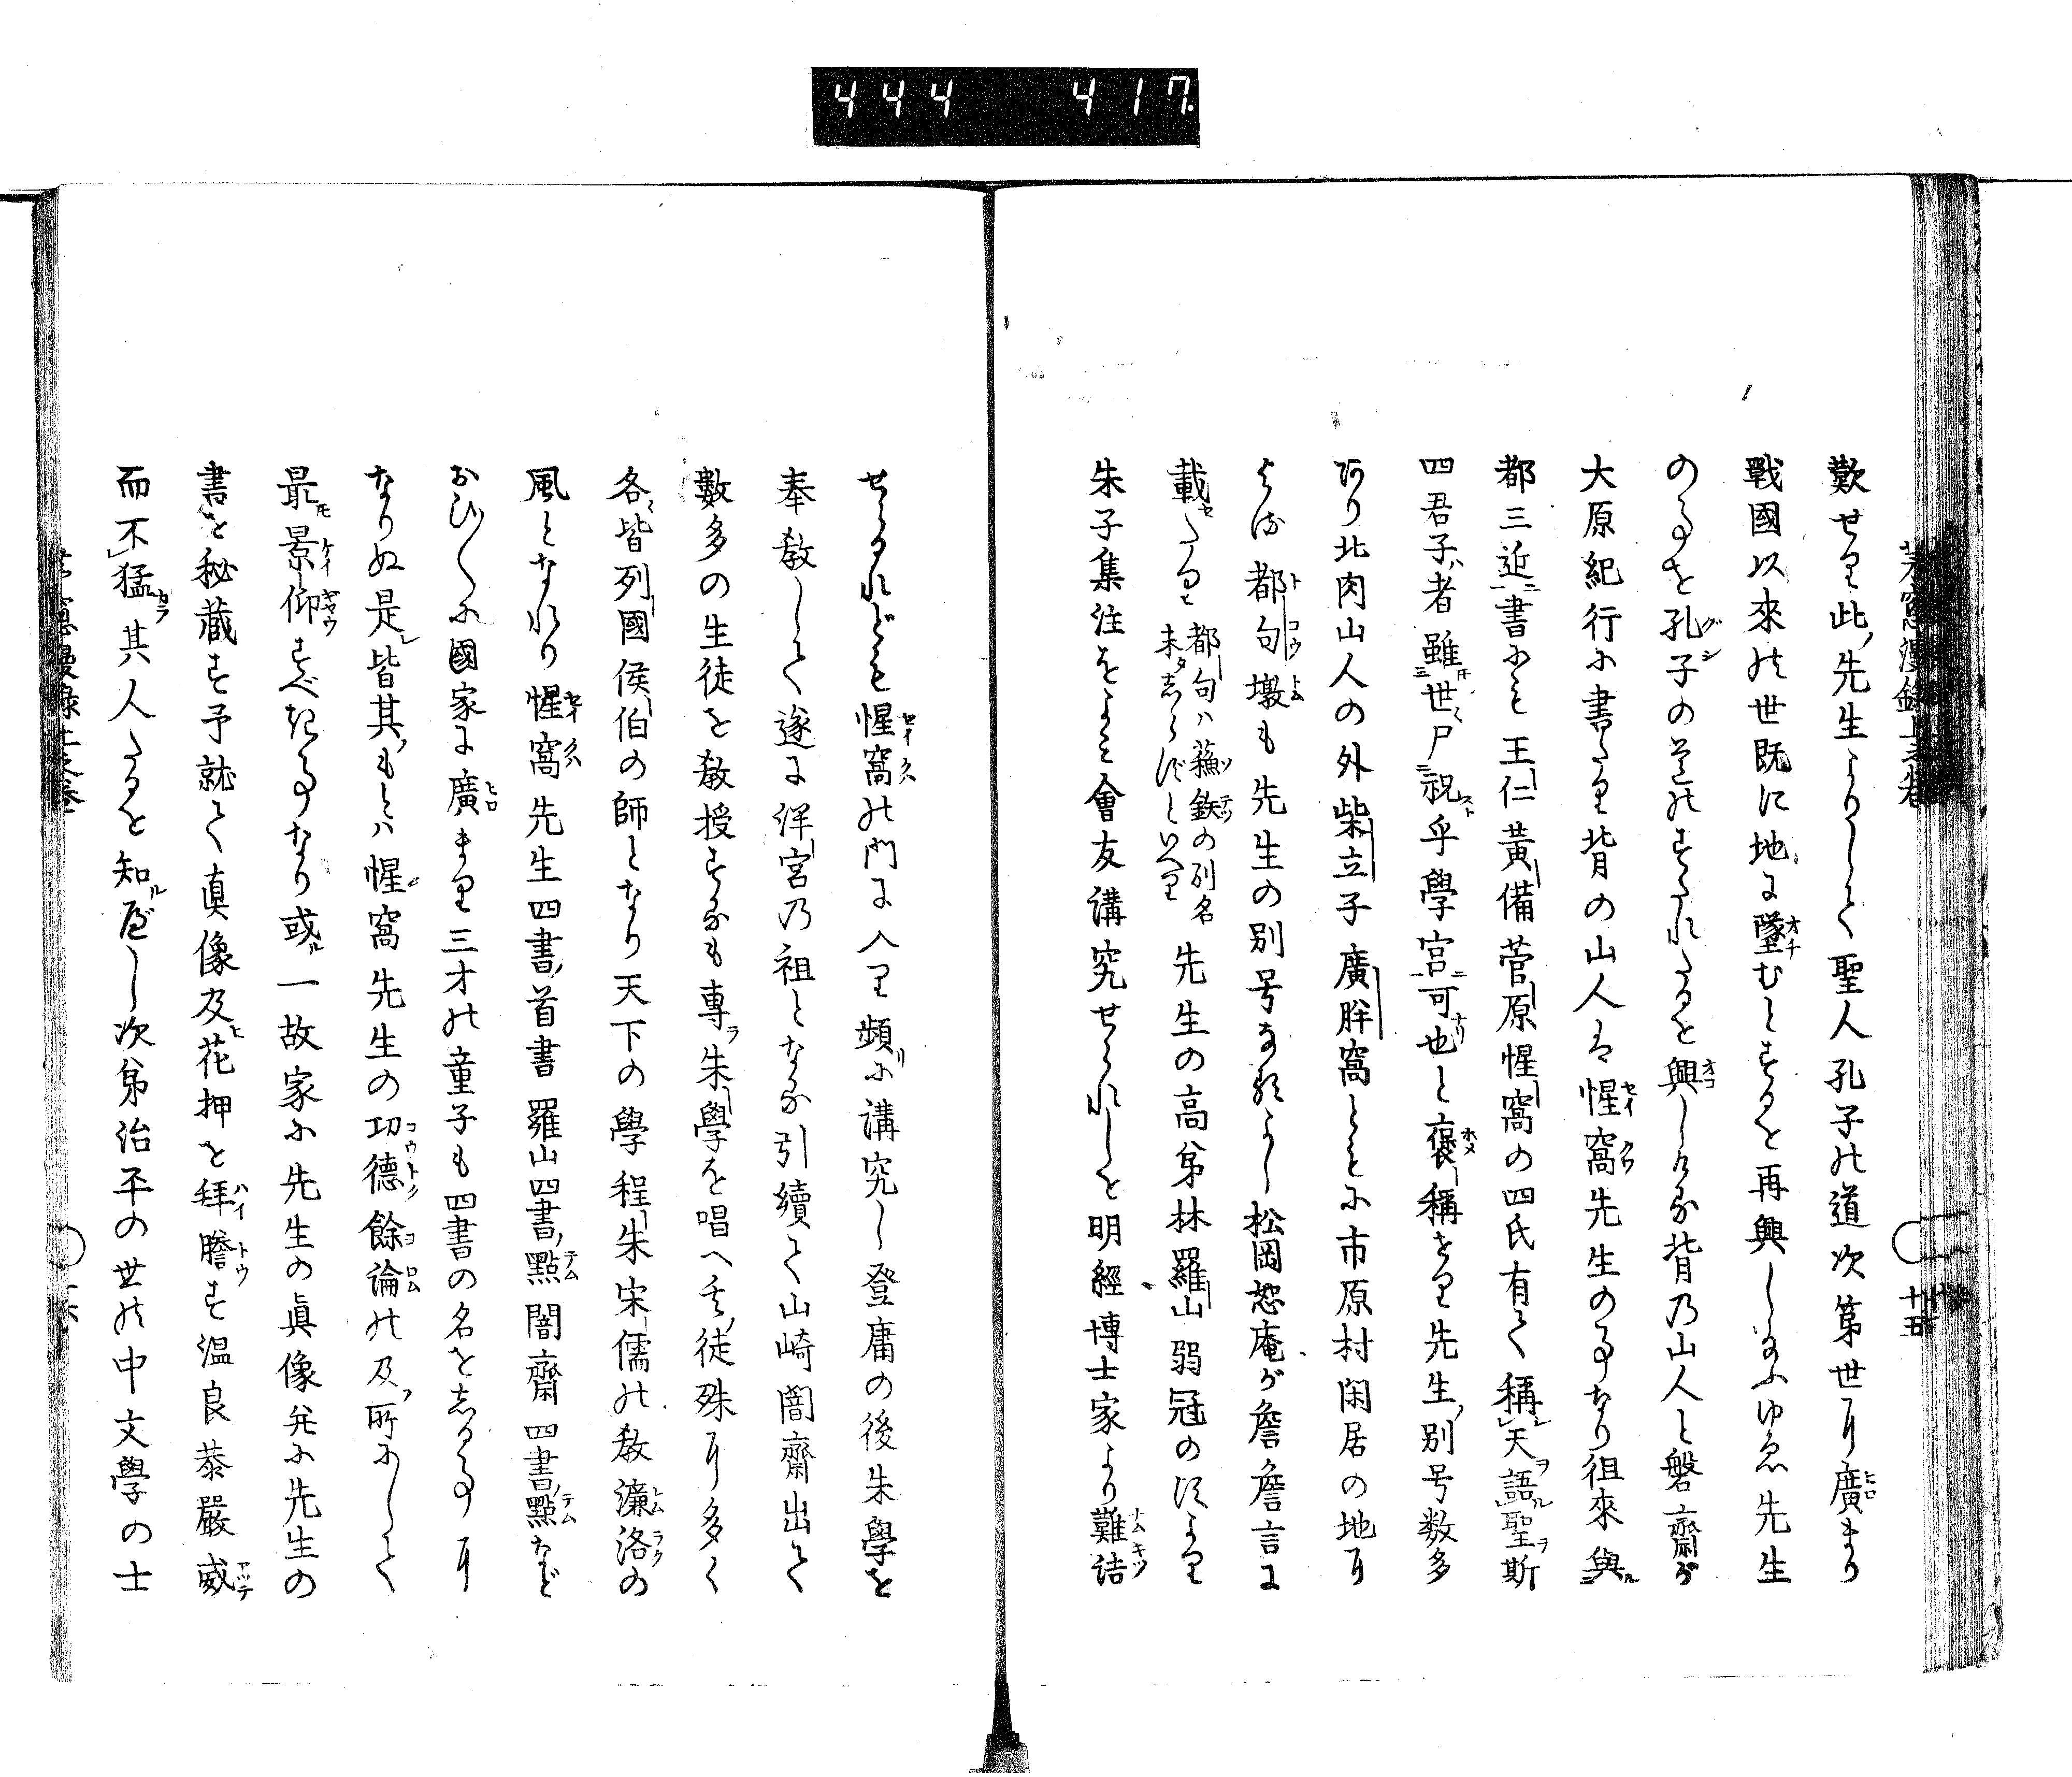 444 417
歎せり此先生よりして聖人孔子の道次第世に廣まり
戰國以來の世既に地に墜むとするを再興し給ふゆゑ先生
の事を孔子の道のすたれたるを興しける背乃山人と磐齋が
大原紀行に書たり背の山人は惺窩先生の事なり徂來與
都三近書にも王仁黃備菅原惺窩の四氏有て稱天語聖斯
四君子者雖世尸祝乎學宮可也と褒稱せり先生別号数多
あり北肉山人の外柴立子廣胖窩ともに市原村閑居の地に
よる都句墩も先生の別号なるよし松岡恕庵が詹詹言に
載たると都句ハ蘓鉄の列名未しらずといへり先生の高弟林羅山弱冠の頃より
朱子集注をよみ會友講究せられしを明經博士家より難詰
せらるれども惺窩の門に入り頻に講究し登庸の後朱學を
奉教して遂に泮宮乃祖となる引續て山崎闇齋出て
數多の生徒を教授するも專朱學を唱へ其徒殊に多く
各皆列國侯伯の師となり天下の學程朱宋儒の教濂洛の
風となれり惺窩先生四書首書羅山四書點闇齋四書點など
おひ〱に國家に廣まり三才の童子も四書の名をしる事に
なりぬ是皆其もとハ惺窩先生の功德餘論の及所にして
最景仰すべき事なり或一故家に先生の眞像并に先生の
書を秘蔵す予就て真像及花押を拜謄す温良恭嚴威
而不猛其人たるを知べし次第治平の世の中文學の士